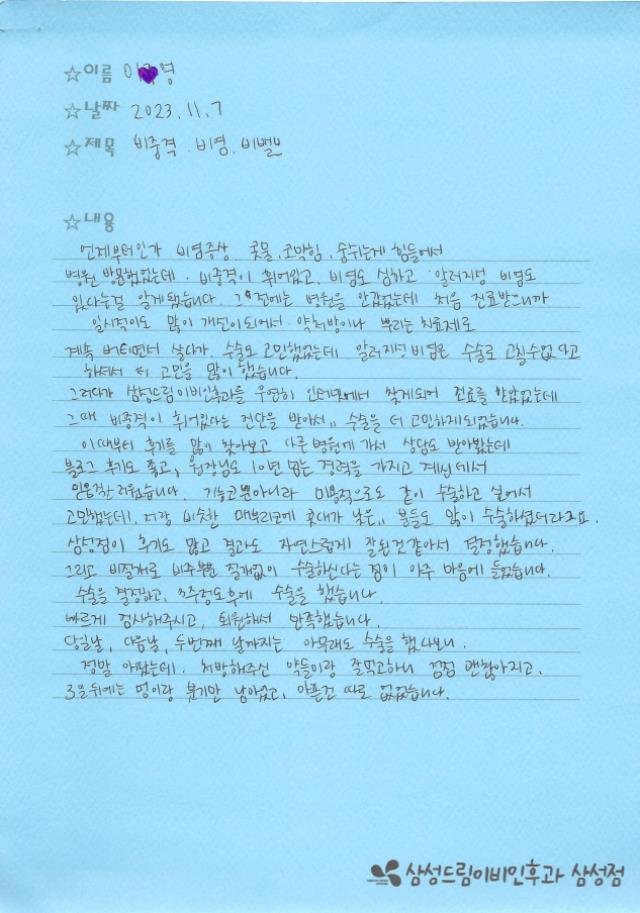 ☆이름 이 영
☆날짜 2023. 11. 7
☆제목 비중격. 비염. 비밸브
☆내용
언제부터인가 비염증상. 콧물, 코막힘, 숨쉬는게 힘들어서
병원 방문했었는데. 비중격이 휘어있고, 비염도 심하고 알러지성 비염도
있다는걸 알게됐습니다. 그 전에는 병원을 안갔었는데 처음 진료받으니까
일시적이도 많이 개선이되어서. 약처방이나 뿌리는 치료제로
계속 버티면서 살다가. 수술도 고민했었는데 알러지성 비염은 수술로 고칠수없다고
하셔서 더 고민을 많이 했습니다.
그러다가 삼성드림이비인후과를 우연히 인터넷에서 찾게되어 진료를 받았었는데
그때 비중격이 휘어있다는 진단을 받아서,, 수술을 더 고민하게되었습니다.
이때부터 후기를 많이 찾아보고 다른병원에 가서 상담도 받아봤는데
블로그 후기도 좋고, 원장님도 10년 넘는 경력을 가지고 계신데서
믿음직스러웠습니다. 기능코뿐아니라 미용적으로도 같이 수술하고 싶어서
고민했는데, 저랑 비슷한 매부리코에 콧대가 낮은,, 분들도 많이 수술하셨더라구요.
삼성점이 후기도 많고 결과도 자연스럽게 잘된것같아서 결정했습니다.
그리고 비절개로 비주부분 절개없이 수술하신다는 점이 아주 마음에 들었습니다.
수술을 결정하고, 3주정도후에 수술을 했습니다.
빠르게 검사해주시고, 퇴원해서 만족했습니다.
당일날, 다음날, 두번째 날까지는 아무래도 수술을 했다보니.
정말 아팠는데. 처방해주신 약들이랑 잘먹고하니 점점 괜찮아지고.
3일뒤에는 멍이랑 붓기만 남아있고, 아픈건 따로 없었습니다.
삼성드림이비인후과 삼성점